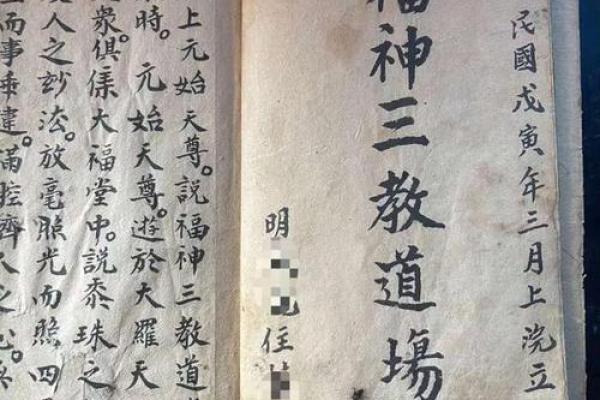 民國戊寅年三月上浣立
福神三教道場
明
住
上元始天尊。說福神三教道
時。元始天尊。遊於大羅天
衆俱集大福堂中。說黍珠之
人之玅法。放毫照光而照四
而事乖違。滿腔齊人之心。